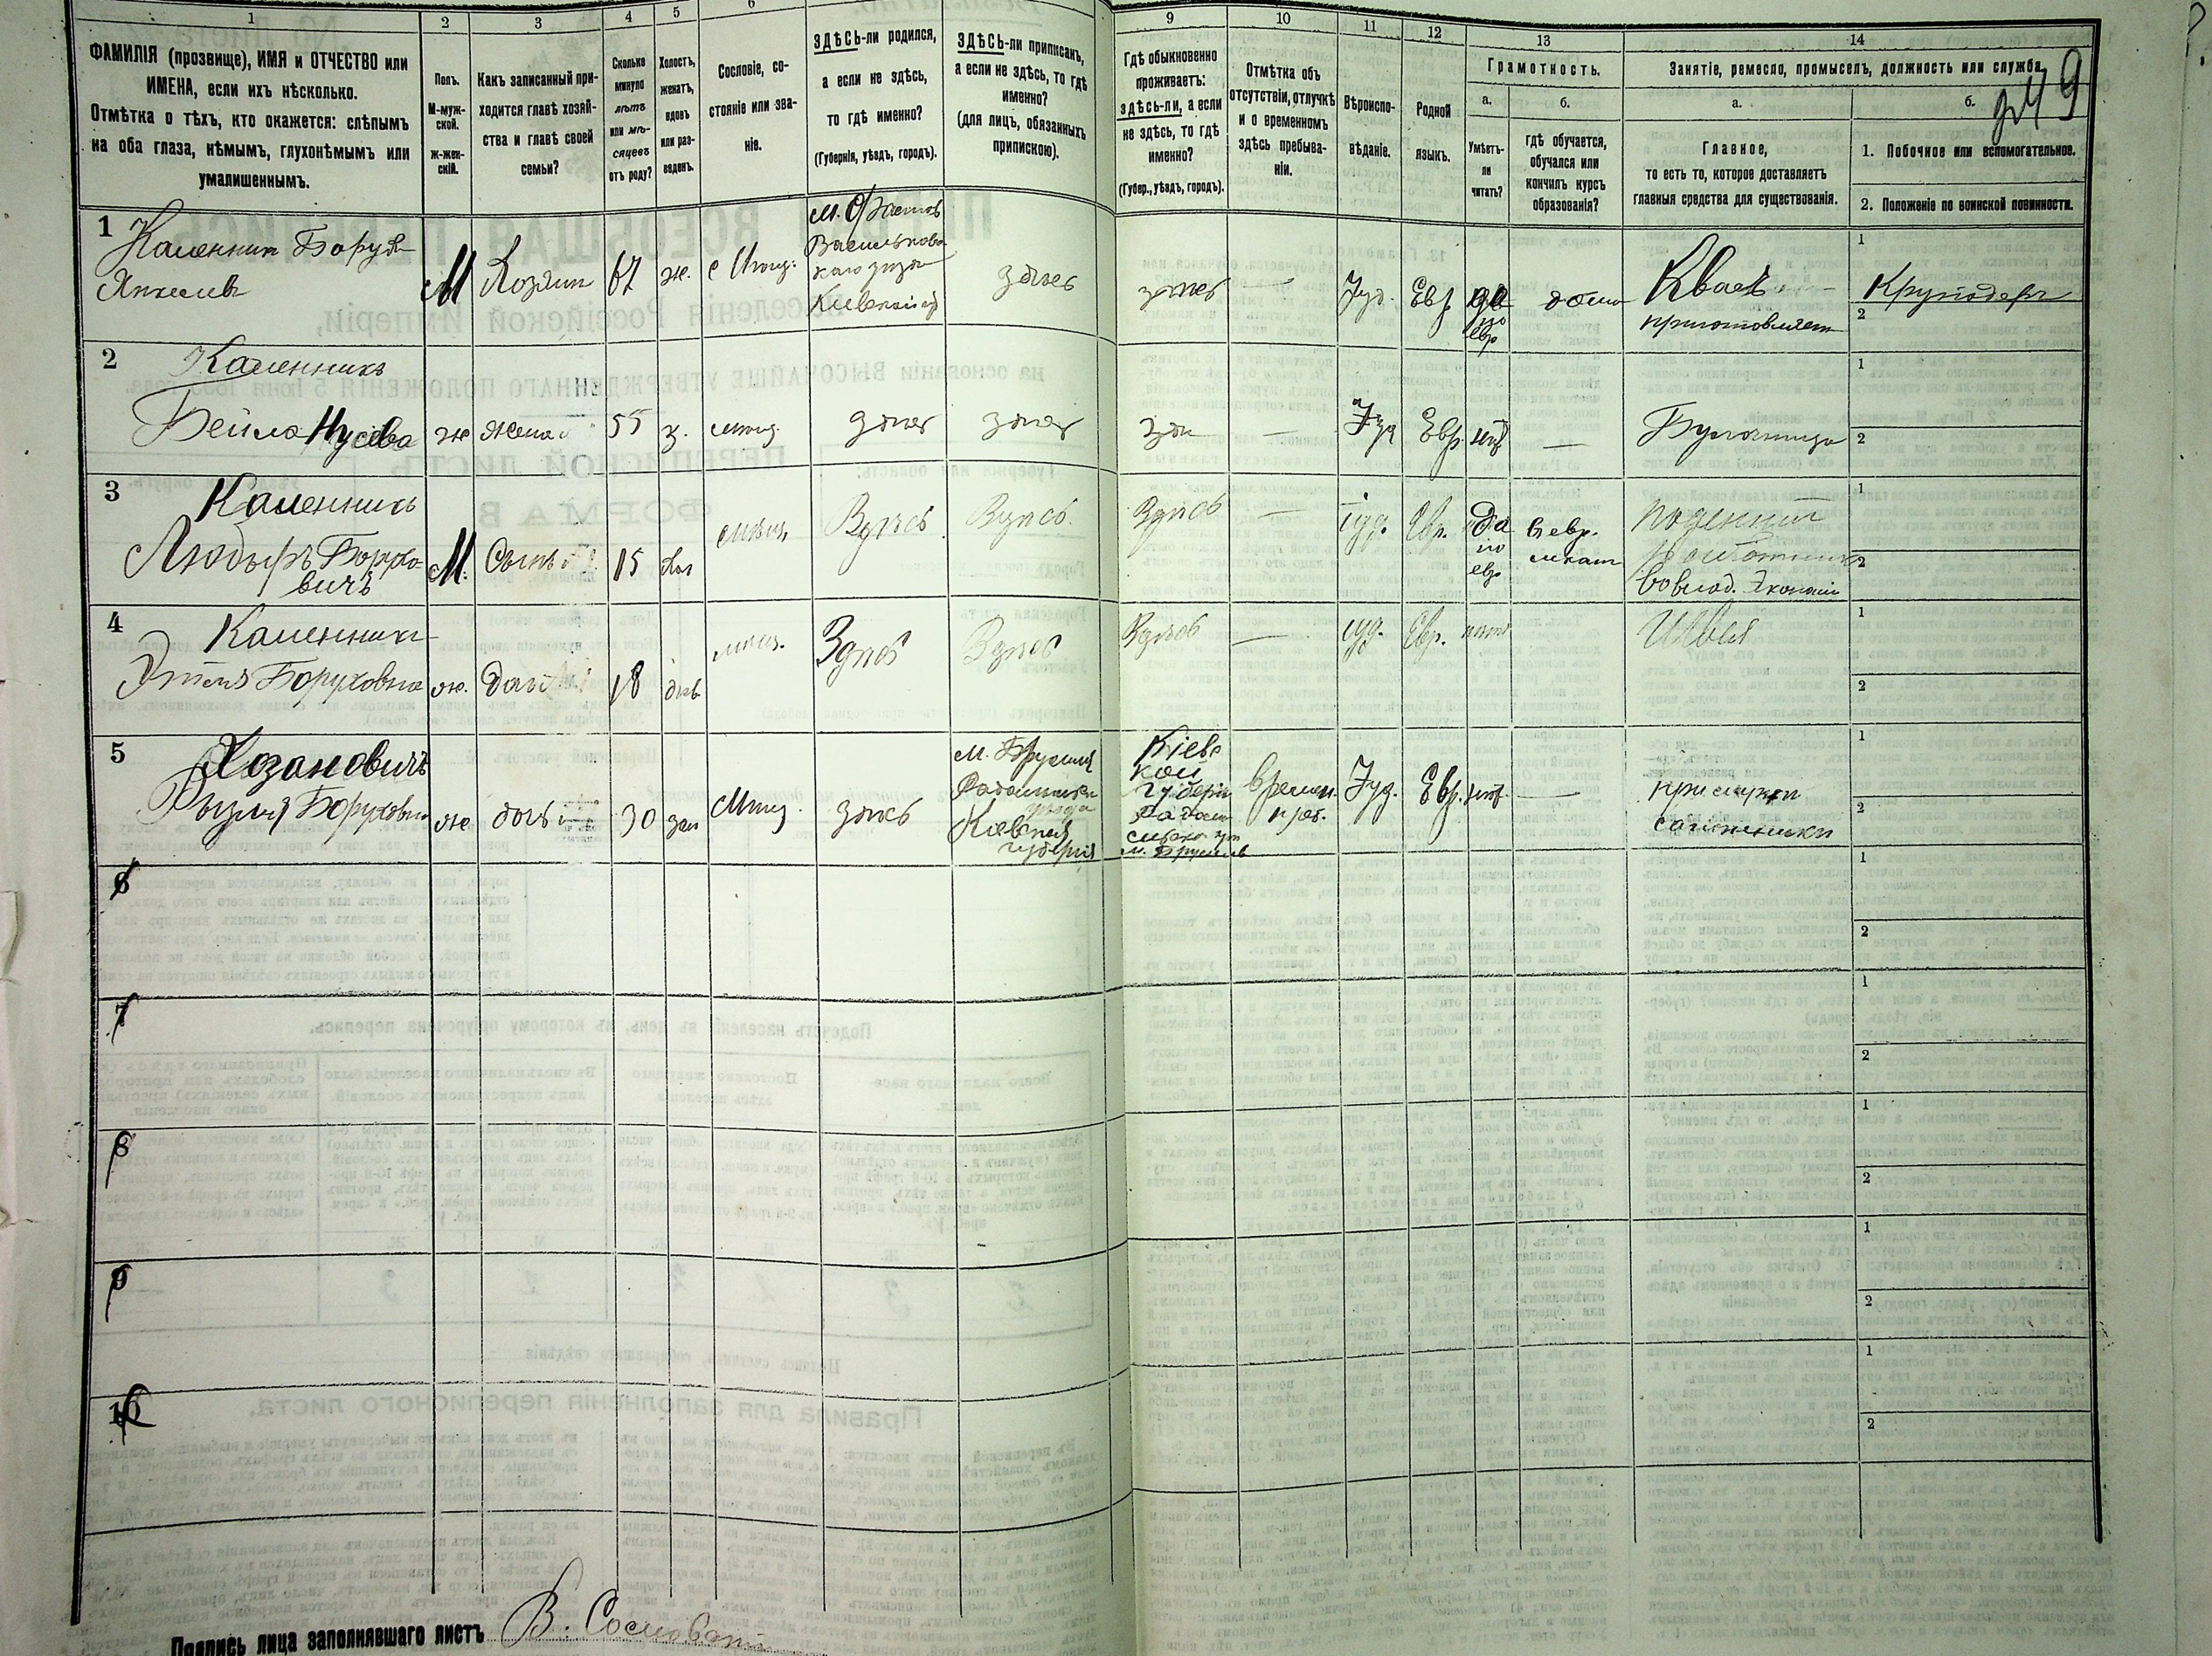 1 2 3 4 5 6 9 10 11 12 13 14
ФАМИЛІЯ (прозвище), ИМЯ и ОТЧЕСТВО или
ИМЕНА, если ихъ нѣсколько.
Отмѣтка о тѣхъ, кто окажется: слѣпымъ
на оба глаза, нѣмымъ, глухонѣмымъ или
умалишеннымъ.
Полъ.
М-муж-
ской.
ж-жен-
скій.
Какъ записанный при-
ходится главѣ хозяй-
ства и главѣ своей
семьи?
Сколько
минуло
лѣтъ
или мѣ-
сяцевъ
отъ роду?
Холостъ,
женатъ,
вдовъ
или раз-
веденъ.
Сословіе, со-
стояніе или зва-
ніе.
ЗДѢСЬ-ли родился,
а если не здѣсь,
то гдѣ именно?
(Губернія, уѣздъ, городъ).
ЗДѢСЬ-ли приписанъ,
а если не здѣсь, то гдѣ
именно?
(для лицъ, обязанныхъ
припискою).
Гдѣ обыкновенно
проживаетъ:
здѣсь-ли, а если
не здѣсь, то гдѣ
именно?
(Губер., уѣздъ, городъ).
Отмѣтка объ
отсутствіи, отлучкѣ
и о временномъ
здѣсь пребыва-
ніи.
Вѣроиспо-
вѣданіе.
Родной
языкъ.
Грамотность.
а.
Умѣетъ-
ли
читать?
б.
гдѣ обучается,
обучался или
кончилъ курсъ
образованія?
Занятіе, ремесло, промыселъ, должность или служба.
а.
Главное,
то есть то, которое доставляетъ
главныя средства для существованія.
б.
9
1. Побочное или вспомогательное.
2. Положеніе по воинской повинности.
1
Каменникъ Борухъ
Янкелевъ
М
Хозяин
67
ж.
м. Фастов
Васильков
Киевской
здѣсь
здѣсь
—
Іуд.
Евр
да
по
евр
дома
Квасъ
приготовляет
1
Круподеръ
2
2
Каменникъ
Бейла Нусева
ж
жена
55
з.
мѣщ.
здѣсь
здѣсь
зд
—
Іуд
Евр.
нѣт
—
Булочница
1
2
3
Каменникъ
Борухо
вичъ
М.
Сынъ
15
хол
мѣщ.
Здѣсь
Здѣсь.
Здѣсь
—
іуд.
Евр.
да
по
евр
в евр.
школ
поденный
работник
1
2
4
Каменникъ
Боруховна
ж.
дочь
18
дѣв
мѣщ.
Здѣсь
Здѣсь
Здѣсь
—
іуд.
Евр.
нѣт
Швея
1
2
5
Хозановичъ
Рызля Боруховна
ж
дочь
30
зам
Мѣщ
здѣсь
м. Брусил
Радомысл
уѣзда
Киевская
губернія
Кіевс
кой
Губерніи
Радом
м. Брусилов
времен.
преб.
Іуд.
Евр.
нѣт
—
при мужѣ
1
2
6
1
2
7
1
2
8
1
2
9
1
2
10
1
2
Подпись лица заполнявшаго листъ